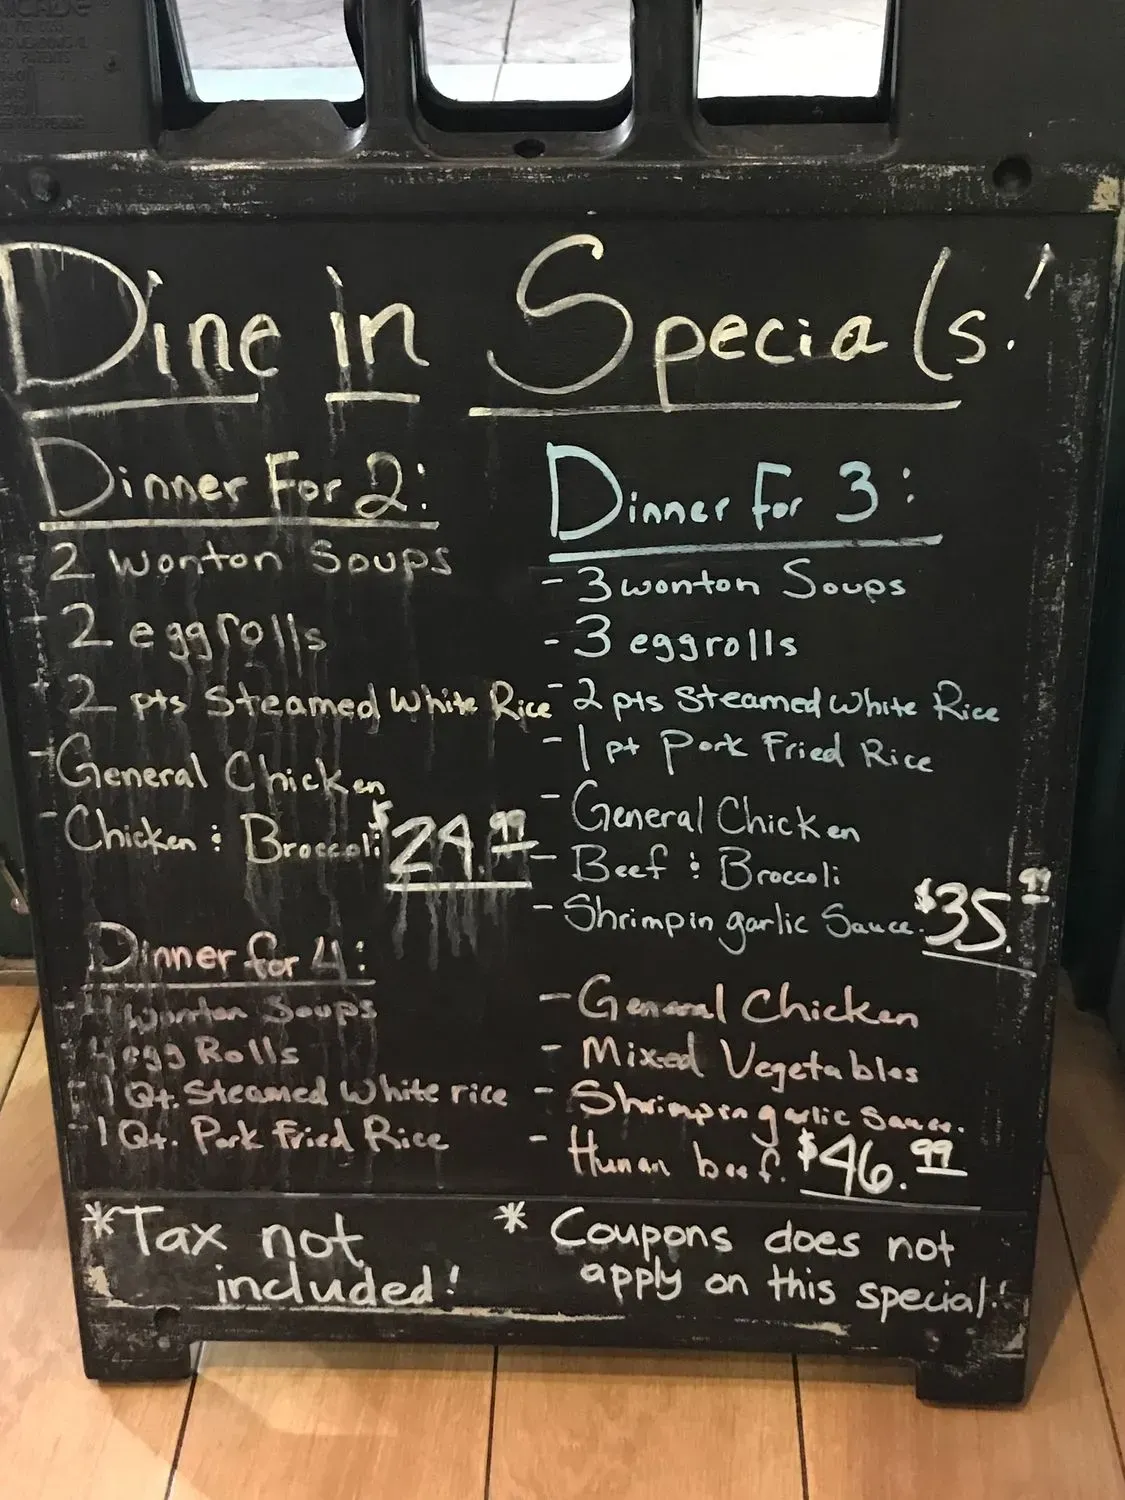 Dine in Specials!
Dinner For 2:
- 2 wonton Soups
- 2 eggrolls
- 2 pts Steamed White Rice
- General Chicken
- Chicken & Broccoli $24.99
Dinner for 3:
- 3 wonton Soups
- 3 eggrolls
- 2 pts Steamed White Rice
- 1 pt Pork Fried Rice
- General Chicken
- Beef & Broccoli
- Shrimp in garlic Sauce. $35.99
Dinner for 4:
- 4 wonton Soups
- 4 egg Rolls
- 1 Qt. Steamed White rice
- 1 Qt. Pork Fried Rice
- General Chicken
- Mixed Vegetables
- Shrimp in garlic Sauce.
- Hunan beef. $46.99
*Tax not
included!
* Coupons does not
apply on this special!